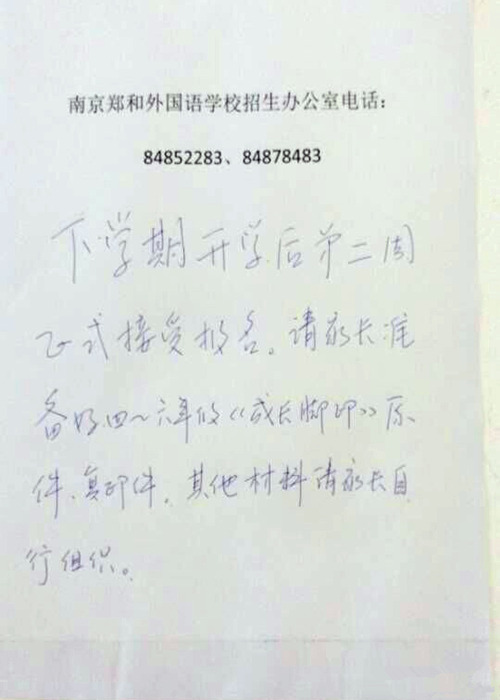 南京郑和外国语学校招生办公室电话：
84852283、84878483
下学期开学后第二周
正式接受报名。请家长准
备好四~六年级《成长脚印》原
件、复印件，其他材料请家长自
行组织。